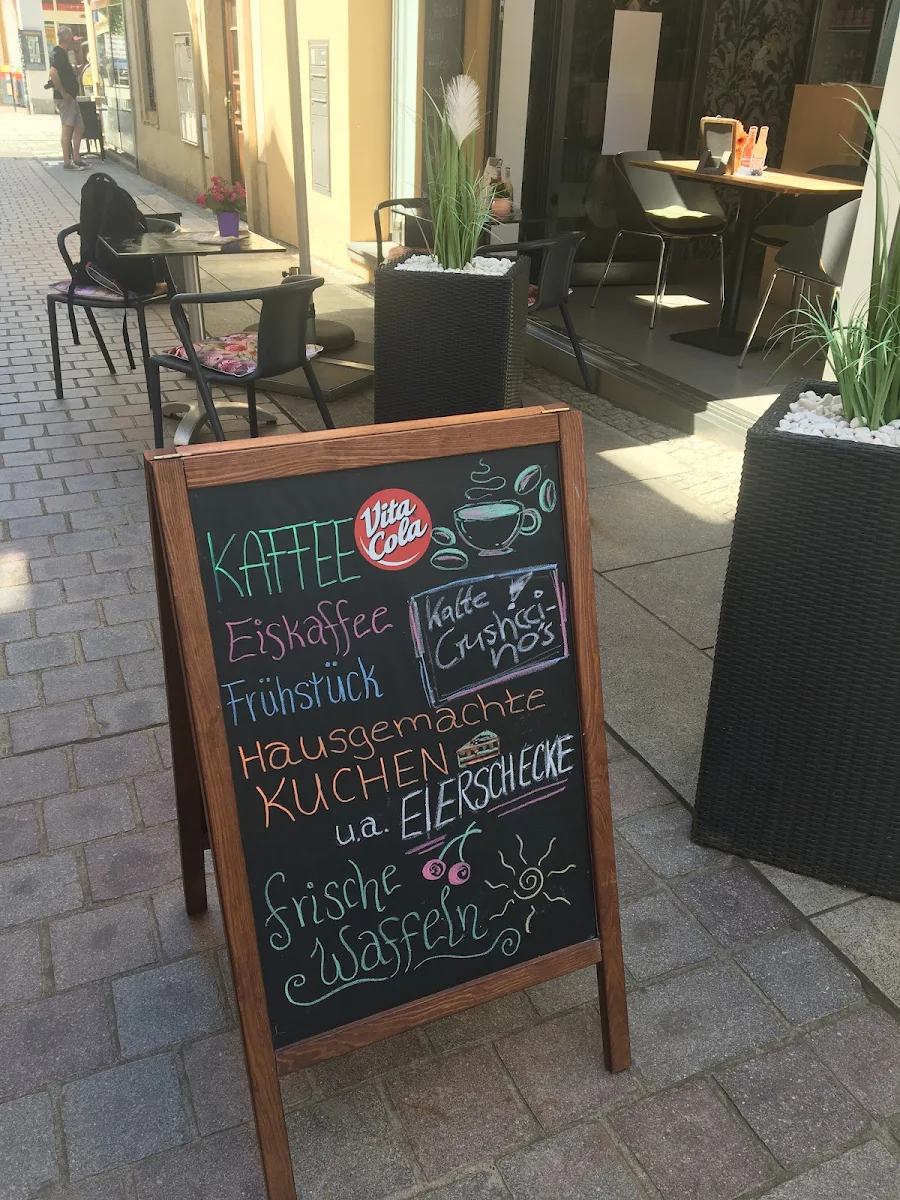 KAFFEE
Vita
Cola
Eiskaffee
Kalte
Crushcci-
no's
Frühstück
Hausgemachte
KUCHEN
u.a. EIERSCHECKE
frische
Waffeln